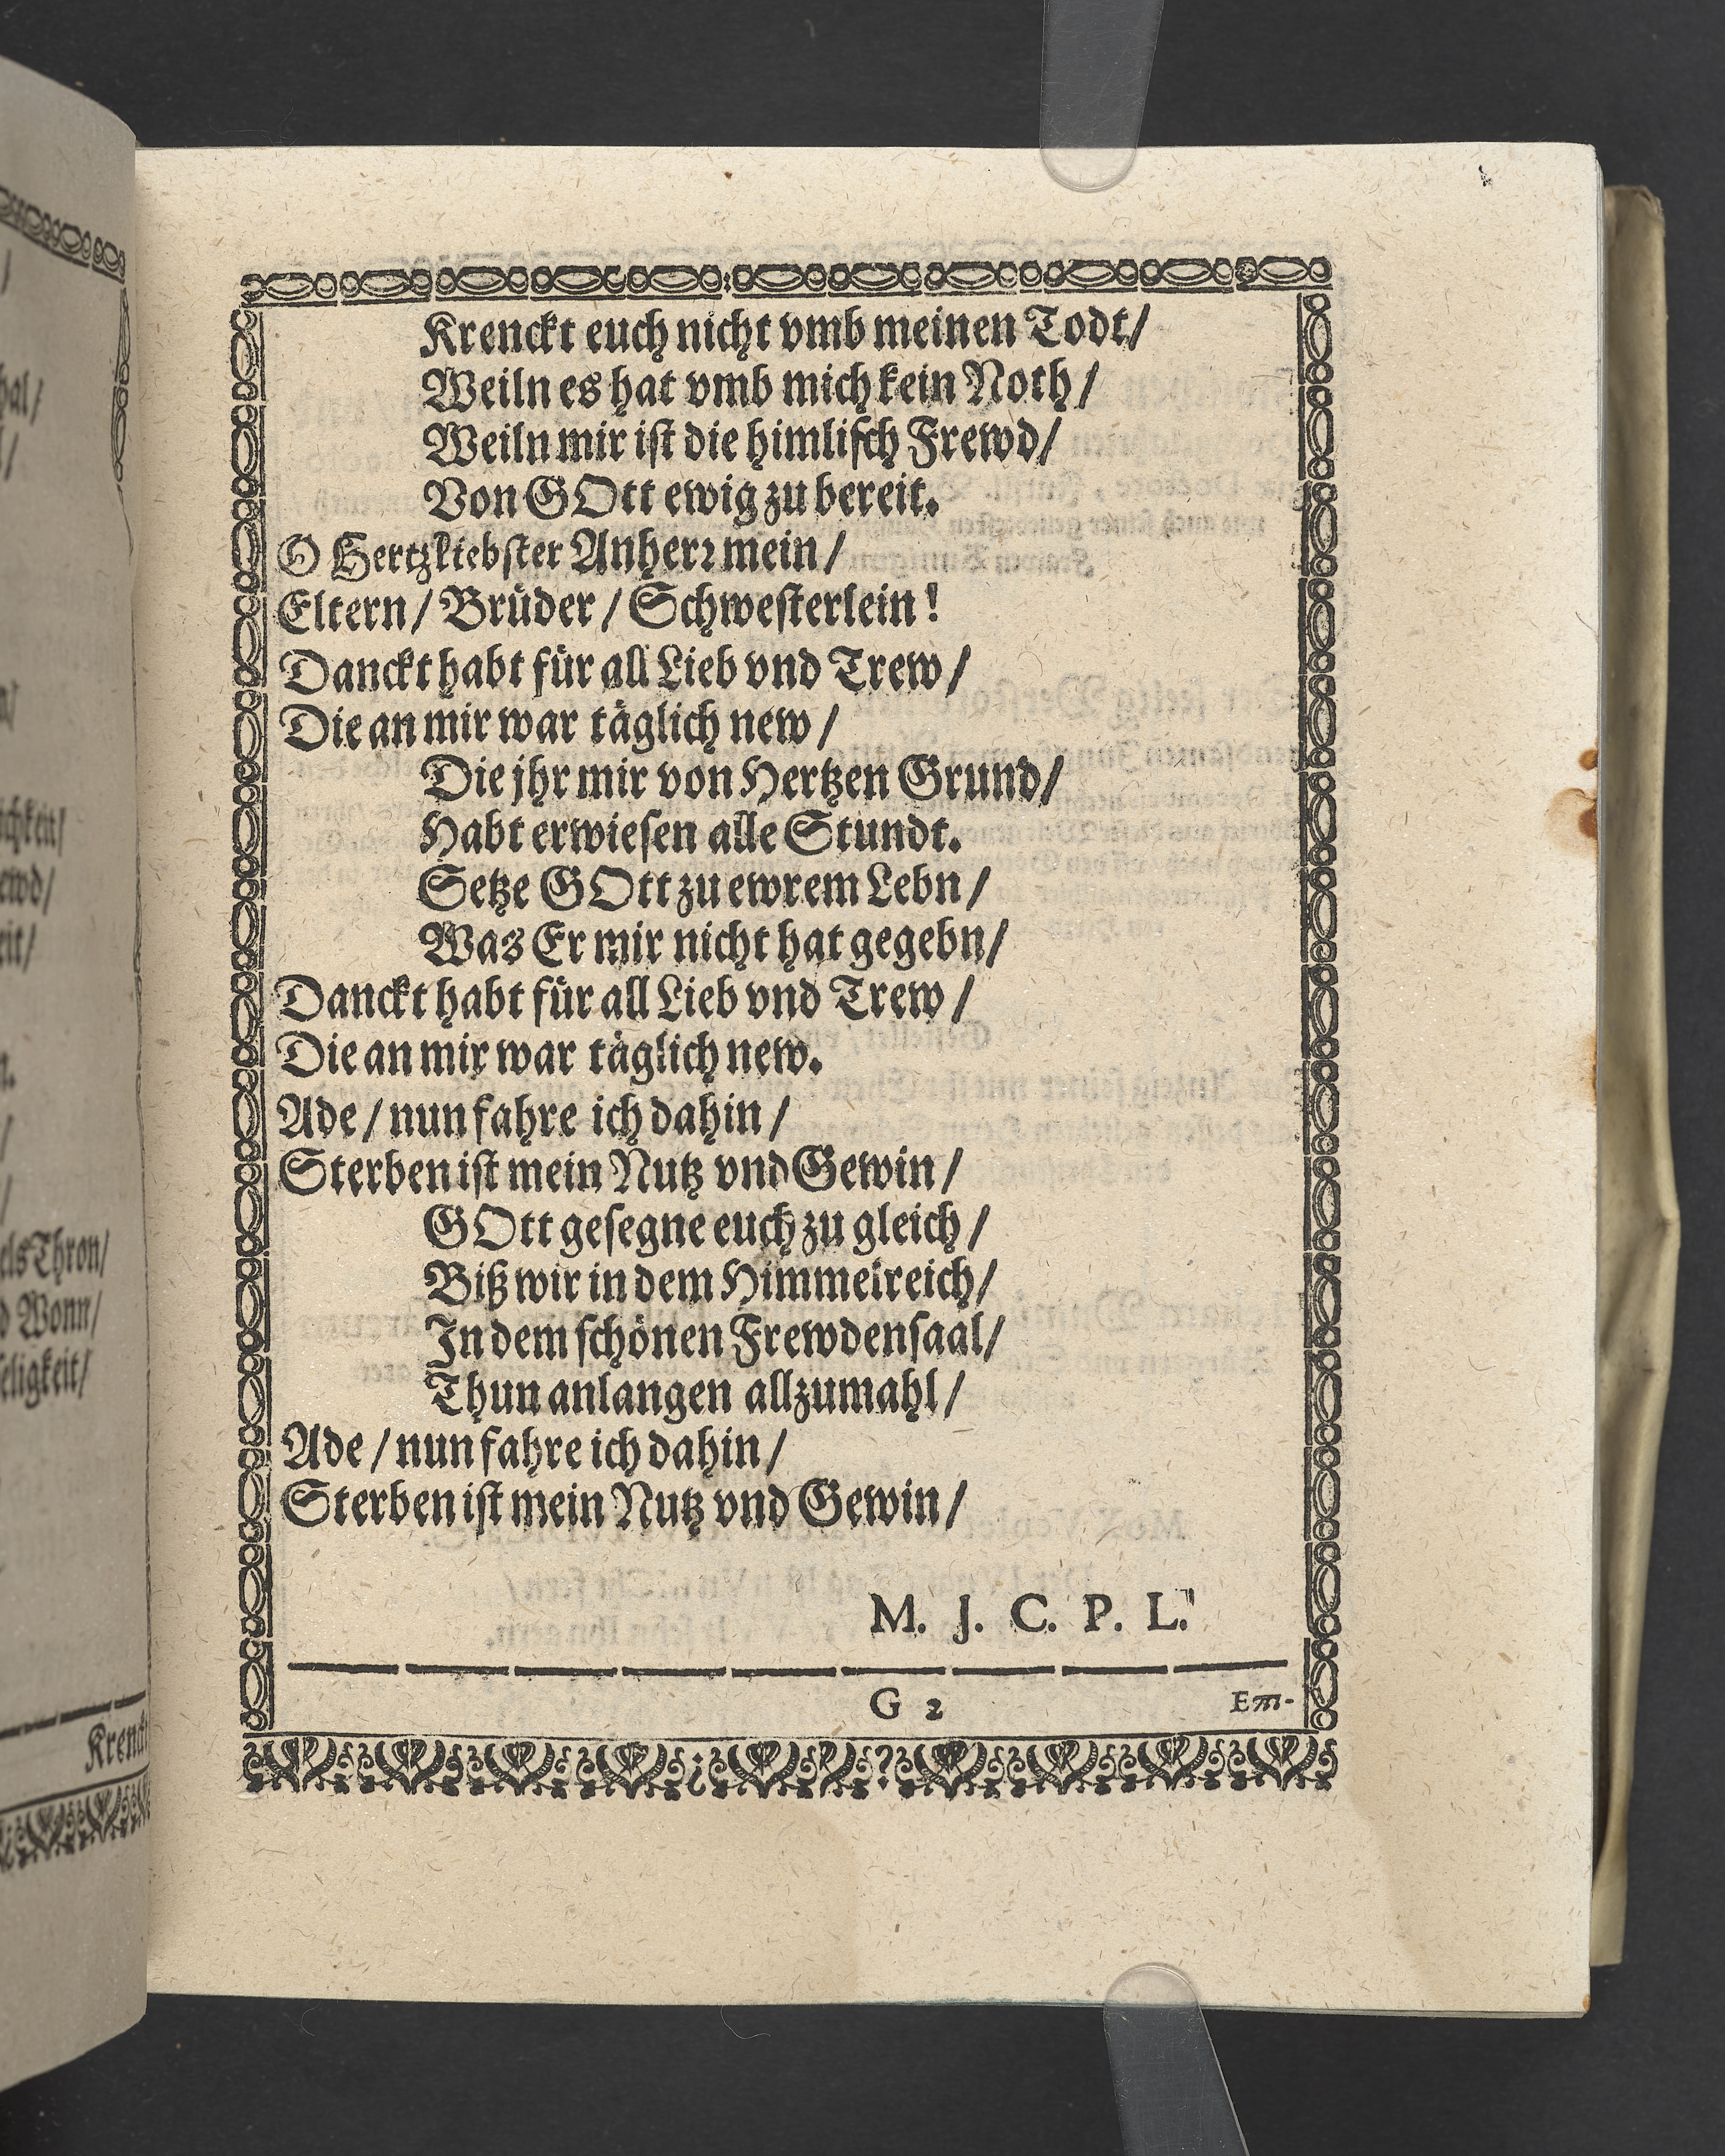 Krenckt euch nicht vmb meinen Todt/
Weiln es hat vmb mich kein Noth/
Weiln mir ist die himlisch Frewd/
Von GOtt ewig zu bereit.
O Hertzliebster Anherr mein/
Eltern/ Brüder/ Schwesterlein!
Danckt habt für all Lieb vnd Trew/
Die an mir war täglich new/
Die jhr mir von Hertzen Grund/
Habt erwiesen alle Stundt.
Setze GOtt zu ewrem Lebn/
Was Er mir nicht hat gegebn/
Danckt habt für all Lieb vnd Trew/
Die an mir war täglich new.
Ade/ nun fahre ich dahin/
Sterben ist mein Nutz vnd Gewin/
GOtt gesegne euch zu gleich/
Biß wir in dem Himmelreich/
In dem schönen Frewdensaal/
Thun anlangen allzumahl/
Ade/ nun fahre ich dahin/
Sterben ist mein Nutz vnd Gewin/
M. J. C. P. L.
G 2
Em-
els Thron/
Wonn/
eligkeit/
Krenckt